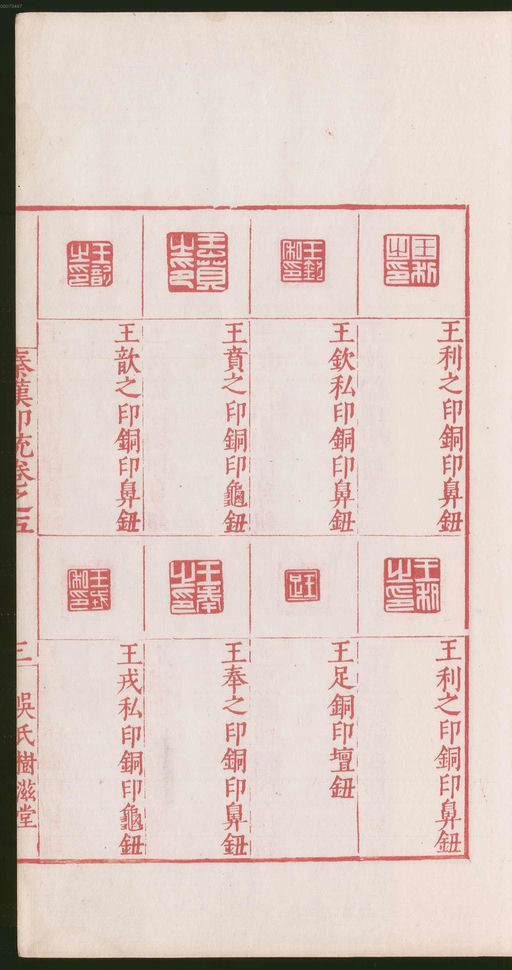 00073447
王利之印銅印鼻鈕
王欽私印銅印鼻鈕
王賁之印銅印龜鈕
王歆之印銅印鼻鈕
王利之印銅印鼻鈕
王足銅印壇鈕
王奉之印銅印鼻鈕
王戎私印銅印龜鈕
秦漢印統卷之五
三
吳氏樹滋堂